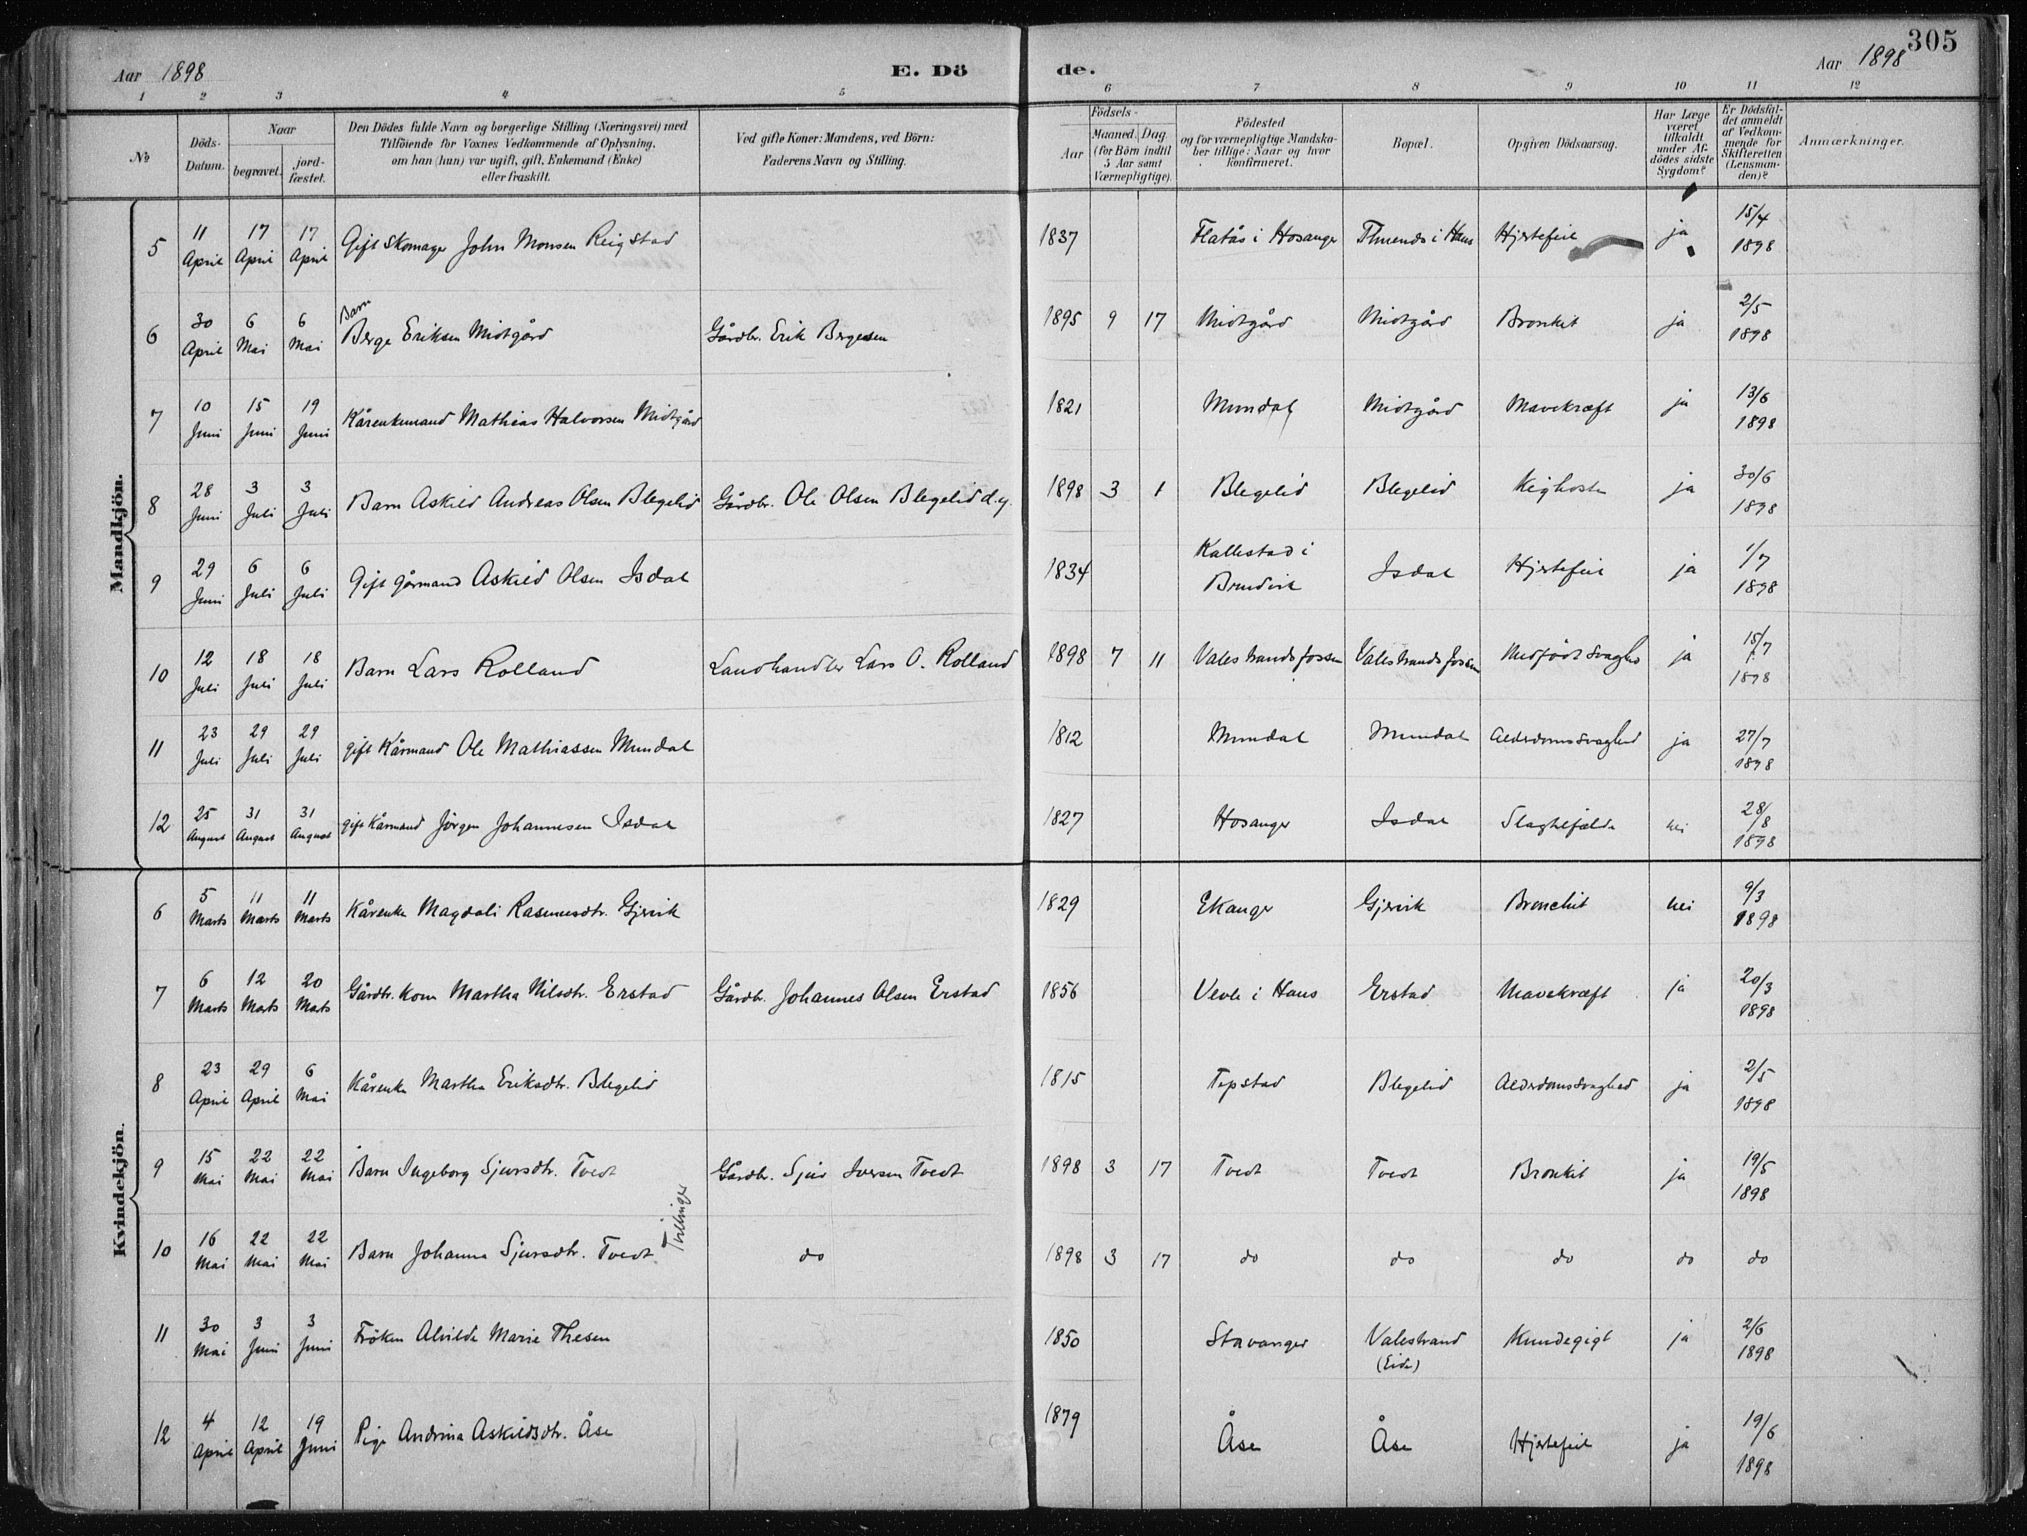 305
Aar 1898
E. Dö de.
Aar 1898
1 2 3 4 5 6 7 8 9 10 11 12
No
Döds-Datum.
Naar
begravet.
jord-fæstet.
Den Dödes fulde Navn og borgerlige Stilling (Næringsvei) med
Tilföiende for Voxnes Vedkommende af Oplysning,
om han (hun) var ugift, gift, Enkemand (Enke)
eller fraskilt.
Ved gifte Koner: Mandens, ved Börn:
Faderens Navn og Stilling.
Födsels-
Aar
Maaned. Dag
(for Börn indtil
5 Aar samt
Værnepligtige).
Födested
og for værnepligtige Mandska-
ber tillige: Naar og hvor
konfirmeret.
Bopæl.
Opgiven Dödsaarsag.
Har Læge
været
tilkaldt
under Af-
dödes sidste
Sygdom?
Er Dödsfal-
det anmeldt
af Vedkom-
mende for
Skifteretten
(Lensman-
den)?
Anmærkninger.
Mandkjön.
5 11 April 17 April 17 April Gift Skomager John Monsen Reigstad 1837 Flatås i Hosanger i Haus Hjertefeil ja 15/4 1898
6 30 April 6 Mai 6 Mai Barn Berge Eriksen Midtgård Gårdbr. Erik Bergesen 1895 9 17 Midtgård Midtgård Bronkit ja 2/5 1898
7 10 Juni 15 Juni 19 Juni Kårenkemand Mathias Halvorsen Midtgård 1821 Mundal Midtgård Mavekræft ja 13/6 1898
8 28 Juni 3 Juli 3 Juli Barn Askild Andreas Olsen Blegelid Gårdbr. Ole Olsen Blegelid d.y. 1898 3 1 Blegelid Blegelid Kighoste ja 30/6 1898
9 29 Juni 6 Juli 6 Juli Gift Gårmand Askild Olsen Isdal 1834 Kallestad i Bruvik Isdal Hjertefeil ja 1/7 1898
10 12 Juli 18 Juli 18 Juli Barn Lars Rolland Landhandler Lars O. Rolland 1898 7 11 Valestrandsfossen Valestrandsfossen Medfødt Svaghed ja 15/7 1898
11 23 Juli 29 Juli 29 Juli gift Kårmand Ole Mathiassen Mundal 1812 Mundal Mundal Alderdomssvaghed ja 27/7 1898
12 25 August 31 August 31 August gift Kårmand Jörgen Johannesen Isdal 1827 Hosanger Isdal Slagtilfælde nei 28/8 1898
Kvindekjön.
6 5 Marts 11 Marts 11 Marts Kårenke Magdali Rasmusdtr. Gjervik 1829 Ekanger Gjervik Bronchit nei 9/3 1898
7 6 Marts 12 Marts 20 Marts Gårdbr. kone Martha Nilsdtr. Erstad Gårdbr. Johannes Olsen Erstad 1856 Vevle i Haus Erstad Mavekræft ja 20/3 1898
8 23 April 29 April 6 Mai Kårenke Martha Eriksdtr. Blegelid 1815 Tepstad Blegelid Alderdomssvaghed ja 2/5 1898
9 15 Mai 22 Mai 22 Mai Barn Ingeborg Sjursdtr. Tvedt Gårdbr. Sjur Iversen Tvedt 1898 3 17 Tvedt Tvedt Bronkit ja 19/5 1898
Tvillinger
10 16 Mai 22 Mai 22 Mai Barn Johanna Sjursdtr. Tvedt do 1898 3 17 do do do do do
11 30 Mai 3 Juni 3 Juni Fröken Alvilde Marie Thesen 1850 Stavanger Valestrand (Eide) Knudegigt ja 2/6 1898
12 4 April 12 April 19 Juni Pige Andrina Askildsdtr. Åse 1879 Åse Åse Hjertefeil ja 19/6 1898